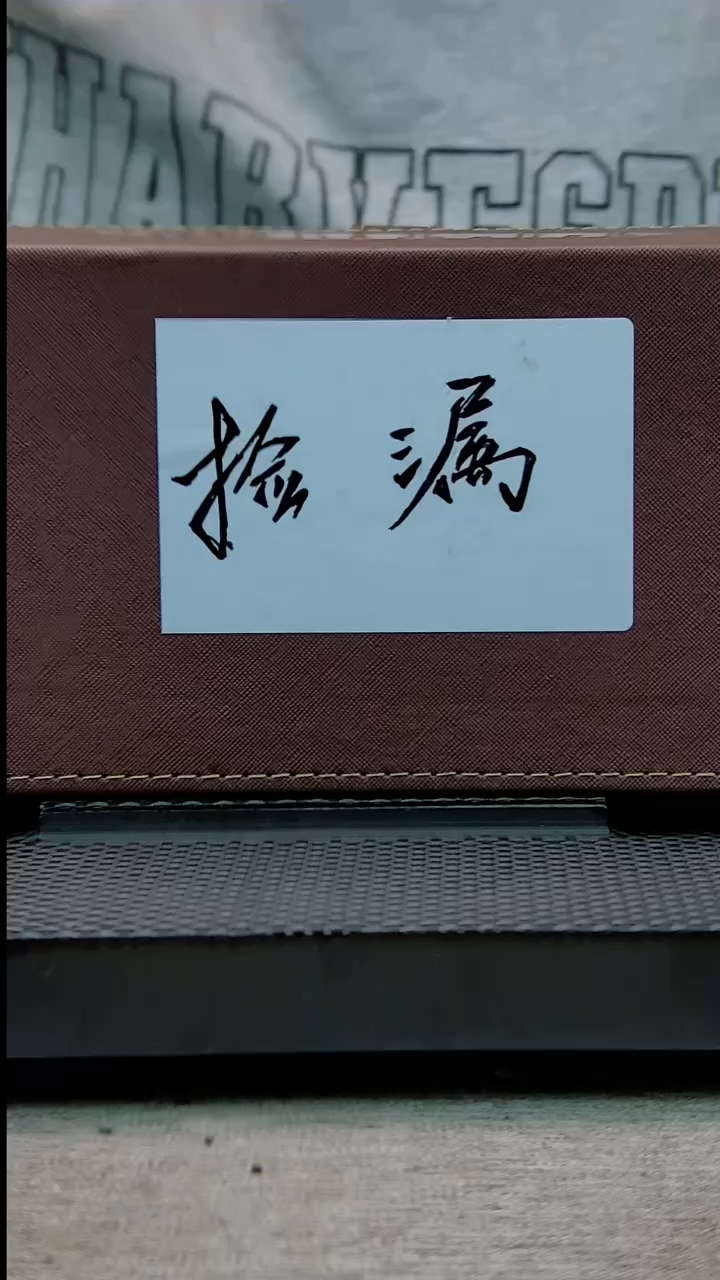 HARVARD
捡 漏